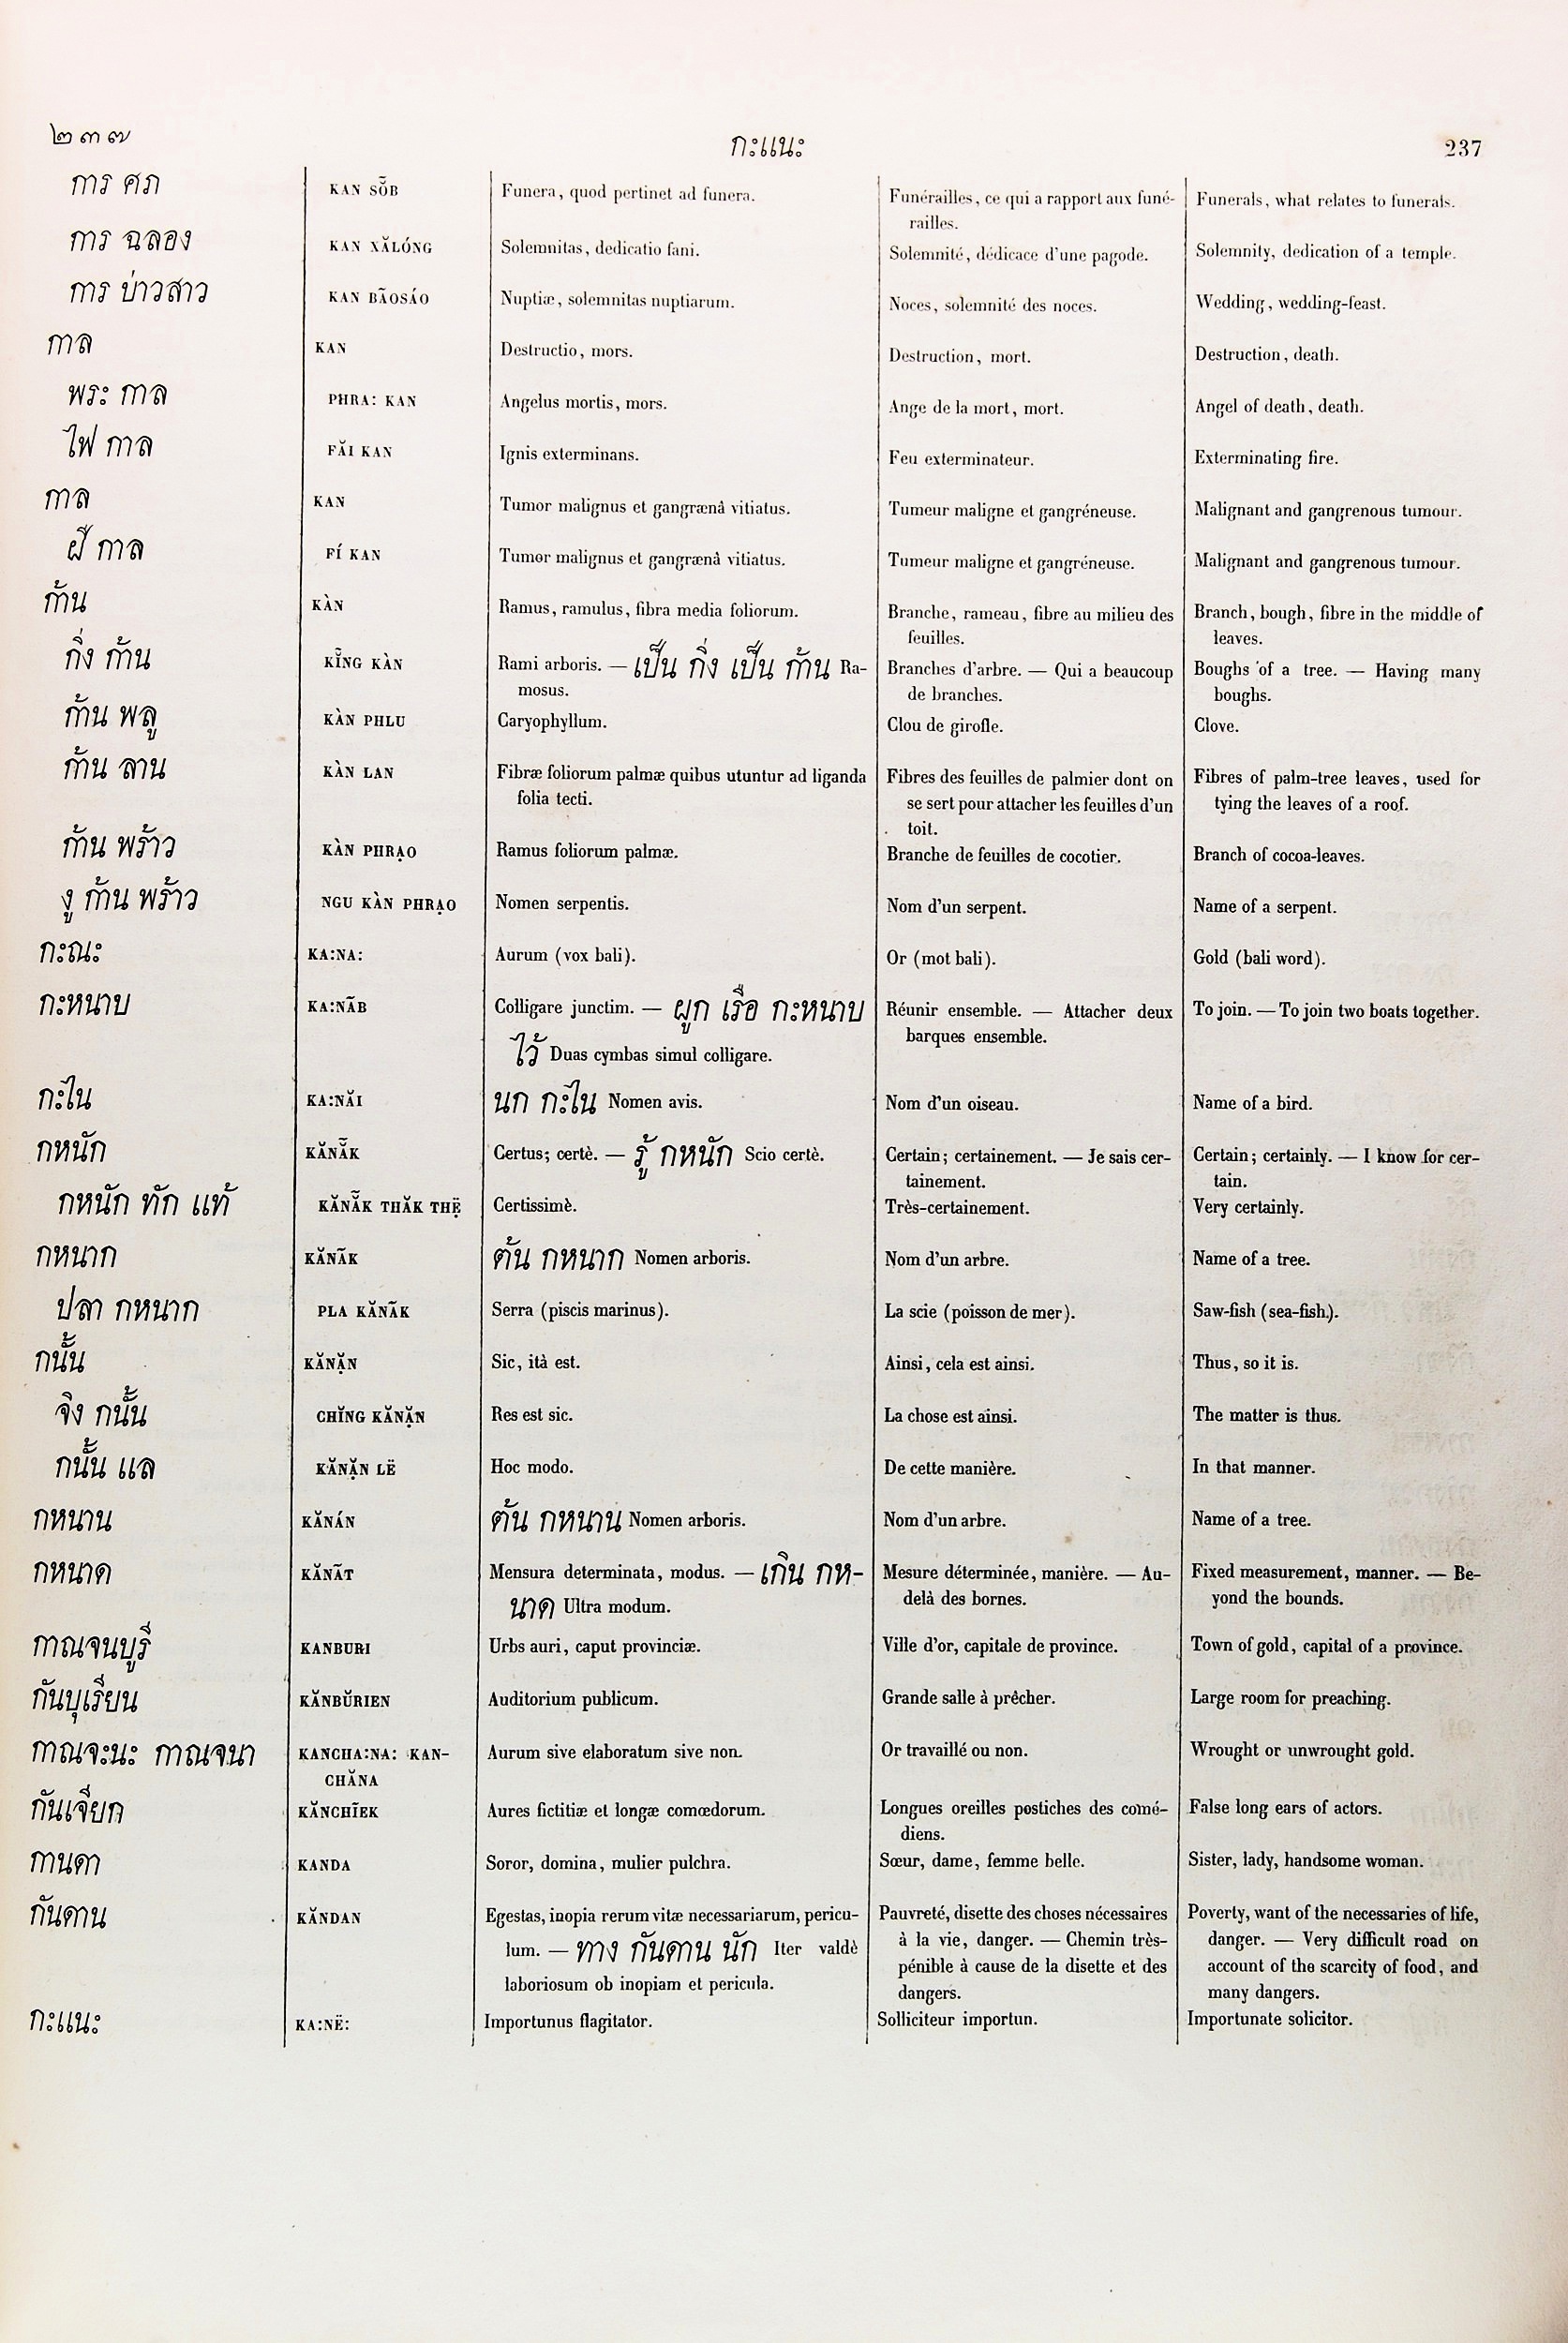 ๒๓๗ กะแนะ 237
การ ศภ KAN SŎ̃B Funera, quod pertinet ad funera. Funérailles, ce qui a rapport aux funé- Funerals, what relates to funerals.
railles.
การ ฉลอง KAN XĂLÓNG Solemnitas, dedicatio fani. Solemnité, dédicace d'une pagode. Solemnity, dedication of a temple.
การ บ่าวสาว KAN BÃOSÁO Nuptiæ, solemnitas nuptiarum. Noces, solemnité des noces. Wedding, wedding-feast.
กาล KAN Destructio, mors. Destruction, mort. Destruction, death.
พระ กาล PHRA: KAN Angelus mortis, mors. Ange de la mort, mort. Angel of death, death.
ไฟ กาล FĂI KAN Ignis exterminans. Feu exterminateur. Exterminating fire.
กาล KAN Tumor malignus et gangrænâ vitiatus. Tumeur maligne et gangréneuse. Malignant and gangrenous tumour.
ฝี กาล FÍ KAN Tumor malignus et gangrænâ vitiatus. Tumeur maligne et gangréneuse. Malignant and gangrenous tumour.
ก้าน KÀN Ramus, ramulus, fibra media foliorum. Branche, rameau, fibre au milieu des Branch, bough, fibre in the middle of
feuilles. leaves.
กิ่ง ก้าน KĬ̃NG KÀN Rami arboris. — เป็น กิ่ง เป็น ก้าน Ra- Branches d'arbre. — Qui a beaucoup Boughs of a tree. — Having many
mosus. de branches. boughs.
ก้าน พลู KÀN PHLU Caryophyllum. Clou de girofle. Clove.
ก้าน ลาน KÀN LAN Fibræ foliorum palmæ quibus utuntur ad liganda Fibres des feuilles de palmier dont on Fibres of palm-tree leaves, used for
folia tecti. se sert pour attacher les feuilles d'un tying the leaves of a roof.
toit.
ก้าน พร้าว KÀN PHRẠO Ramus foliorum palmæ. Branche de feuilles de cocotier. Branch of cocoa-leaves.
งู ก้าน พร้าว NGU KÀN PHRẠO Nomen serpentis. Nom d'un serpent. Name of a serpent.
กะณะ KA:NA: Aurum (vox bali). Or (mot bali). Gold (bali word).
กะหนาบ KA:NÃB Colligare junctim. — ผูก เรือ กะหนาบ Réunir ensemble. — Attacher deux To join. — To join two boats together.
ไว้ Duas cymbas simul colligare. barques ensemble.
กะไน KA:NĂI นก กะไน Nomen avis. Nom d'un oiseau. Name of a bird.
กหนัก KĂNẴK Certus; certè. — รู้ กหนัก Scio certè. Certain; certainement. — Je sais cer- Certain; certainly. — I know for cer-
tainement. tain.
กหนัก ทัก แท้ KĂNẴK THĂK THẸ̈ Certissimè. Très-certainement. Very certainly.
กหนาก KĂNÃK ต้น กหนาก Nomen arboris. Nom d'un arbre. Name of a tree.
ปลา กหนาก PLA KĂNÃK Serra (piscis marinus). La scie (poisson de mer). Saw-fish (sea-fish.).
กนั้น KĂNẶN Sic, ità est. Ainsi, cela est ainsi. Thus, so it is.
จิง กนั้น CHĬNG KĂNẶN Res est sic. La chose est ainsi. The matter is thus.
กนั้น แล KĂNẶN LË Hoc modo. De cette manière. In that manner.
กหนาน KĂNÁN ต้น กหนาน Nomen arboris. Nom d'un arbre. Name of a tree.
กหนาด KĂNÃT Mensura determinata, modus. — เกิน กห- Mesure déterminée, manière. — Au- Fixed measurement, manner. — Be-
นาด Ultra modum. delà des bornes. yond the bounds.
กาณจนบูรี KANBURI Urbs auri, caput provinciæ. Ville d'or, capitale de province. Town of gold, capital of a province.
กันบุเรียน KĂNBŬRIEN Auditorium publicum. Grande salle à prêcher. Large room for preaching.
กาณจะนะ กาณจนา KANCHA:NA: KAN- Aurum sive elaboratum sive non. Or travaillé ou non. Wrought or unwrought gold.
CHĂNA
กันเจียก KĂNCHĨEK Aures fictitiæ et longæ comœdorum. Longues oreilles postiches des comé- False long ears of actors.
diens.
กานดา KANDA Soror, domina, mulier pulchra. Sœur, dame, femme belle. Sister, lady, handsome woman.
กันดาน KĂNDAN Egestas, inopia rerum vitæ necessariarum, pericu- Pauvreté, disette des choses nécessaires Poverty, want of the necessaries of life,
lum. — ทาง กันดาน นัก Iter valdè à la vie, danger. — Chemin très- danger. — Very difficult road on
laboriosum ob inopiam et pericula. pénible à cause de la disette et des account of the scarcity of food, and
dangers. many dangers.
กะแนะ KA:NË: Importunus flagitator. Solliciteur importun. Importunate solicitor.